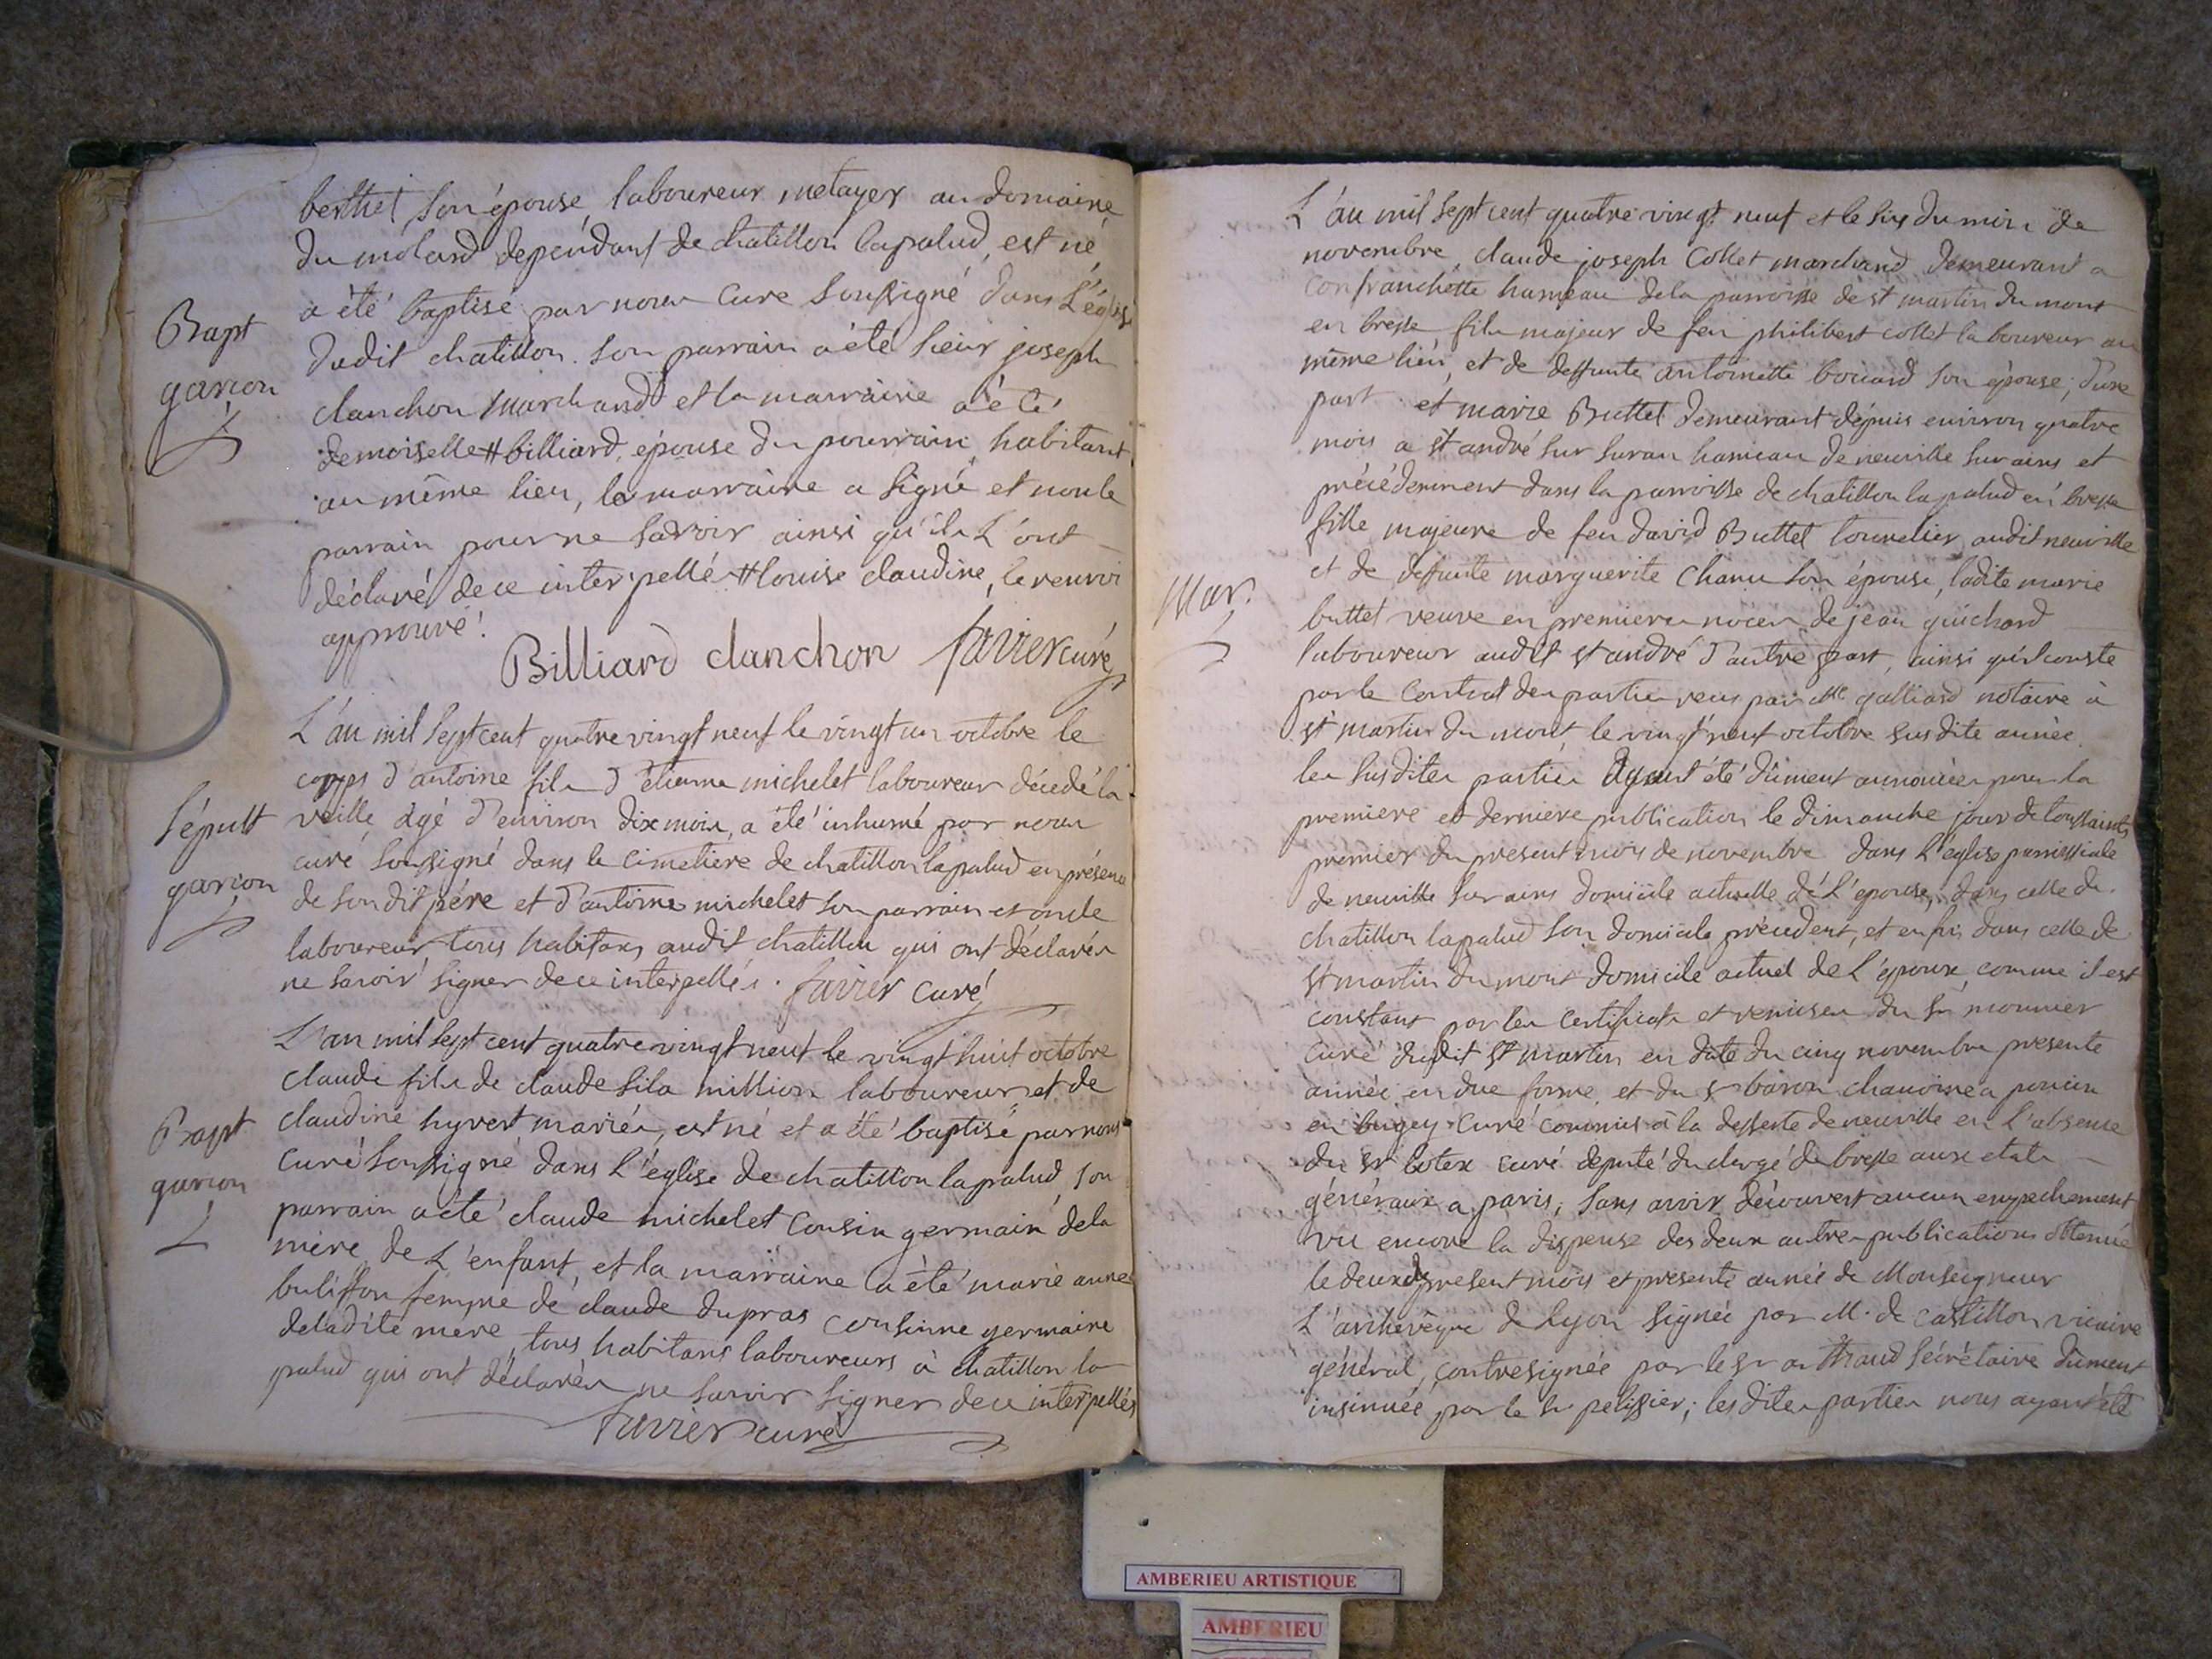 berthet son épouse, laboureur metayer au domaine
du molard dependant de chatillon lapalud, est né,
a été baptisé par nous Curé soussigné dans L'église
Bapt
garcon
dudit chatillon. son parrain a été sieur joseph
clanchon marchand et la marraine a été
demoiselle # billiard, épouse du parrain, habitant
au même lieu, la marraine a signé et non le
parrain pour ne savoir ainsi qu'ils L'ont
déclaré de ce interpellé # louise claudine, le renvoi
approuvé.
Billiard clanchon favier curé
L'an mil sept cent quatre vingt neuf le vingt un octobre le
corps d'antoine fils d'etienne michelet laboureur décedé la
Sépult
garcon
veille, agé d'environ dix mois, a été inhumé par nous
curé soussigné dans le cimetiere de chatillon lapalud en présence
de son dit pére et d'antoine michelet son parrain et oncle
laboureur, tous habitans audit chatillon qui ont déclarés
ne savoir signer de ce interpellés. favier curé
L'an mil sept cent quatre vingt neuf le vingt huit octobre
claude fils de claude million laboureur et de
Bapt
garcon
claudine hyvert mariés, est né et a été baptisé par nous
curé soussigné dans L'église de chatillon lapalud, son
parrain a été claude michelet cousin germain de la
mère de L'enfant, et la marraine a été marie anne
buliffon femme de claude dupras cousinne germaine
de la dite mére, tous habitans laboureurs à chatillon la
palud qui ont déclarés ne savoir signer de ce interpellés
favier curé
L'an mil sept cent quatre vingt neuf et le six du mois de
novembre, claude joseph Collet marchand demeurant a
Confranchette hameau de la parroisse de st martin du mont
en bresse fils majeur de feu philibert collet laboureur au
même lieu, et de deffunte antoinette bouard son épouse, d'une
part. et marie Buttet demeurant depuis environ quatre
mois a st andré sur suran hameau de neuville sur ains et
précédemment dans la parroisse de chatillon la palud en bresse
fille majeure de feu david Buttet tounelier audit neuville
Mar.
et de deffunte marguerite Chanu son épouse, ladite marie
buttet veuve en premieres noces de jean guichard
laboureur audit st andré d'autre part, ainsi qu'il conste
par le Contrat des parties reçu par Me galliard notaire à
st martin du mont, le vingt neuf octobre susdite année.
les susdites parties Ayant été dûment annoncées pour la
premiere et derniere publication le dimanche jour de toussaints
premier du present mois de novembre dans L'église parroissiale
de neuville sur ains domicile actuelle de L'epouse, dans celle de
chatillon lapalud son domicile précedent, et enfin dans celle de
st martin du mont domicile actuel de L'époux, comme il est
constant par les certificats et remises du sr monnier
curé dudit st martin en date du cinq novembre presente
année en due forme, et du sr baron chanoine a poncin
en bugey curé commis à la desserte de neuville en L'absence
du sr botex curé député du clergé de bresse aux etats
généraux a paris; sans avoir découvert aucun empechement
vu encore la dispense des deux autres publications obtenue
le deux du present mois et presente année de Monseigneur
L'archevêque de Lyon signée par M. de Castillon vicaire
général, contresignée par le sr secrétaire dûment
insinuée par le sr pelissier; lesdites parties nous ayant été
AMBERIEU ARTISTIQUE
AMBERIEU